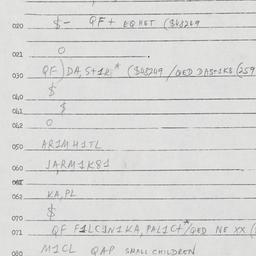 020 $- QF+ EQHET ($48249
021 O
030 QF) DA, S+1R* ($48249 /QED DAS+1KS (259
040 $
041 $
042 O
050 AR1M H1TL
060 JARM1K81
061
062 KA,PL
070 $
071 QF F1LC1N1KA, PAL1C+*/QED NE XX (
080 M1CL QAP SMALL CHILDREN